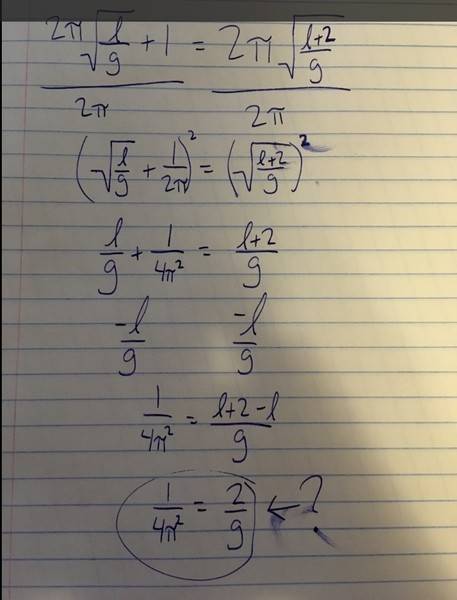 2π√(l/g) + 1 = 2π√((l+2)/g)
2π 2π
(√(l/g) + 1/2π)² = (√((l+2)/g))²
l/g + 1/4π² = (l+2)/g
-l/g -l/g
1/4π² = (l+2-l)/g
1/4π² = 2/g ← ?